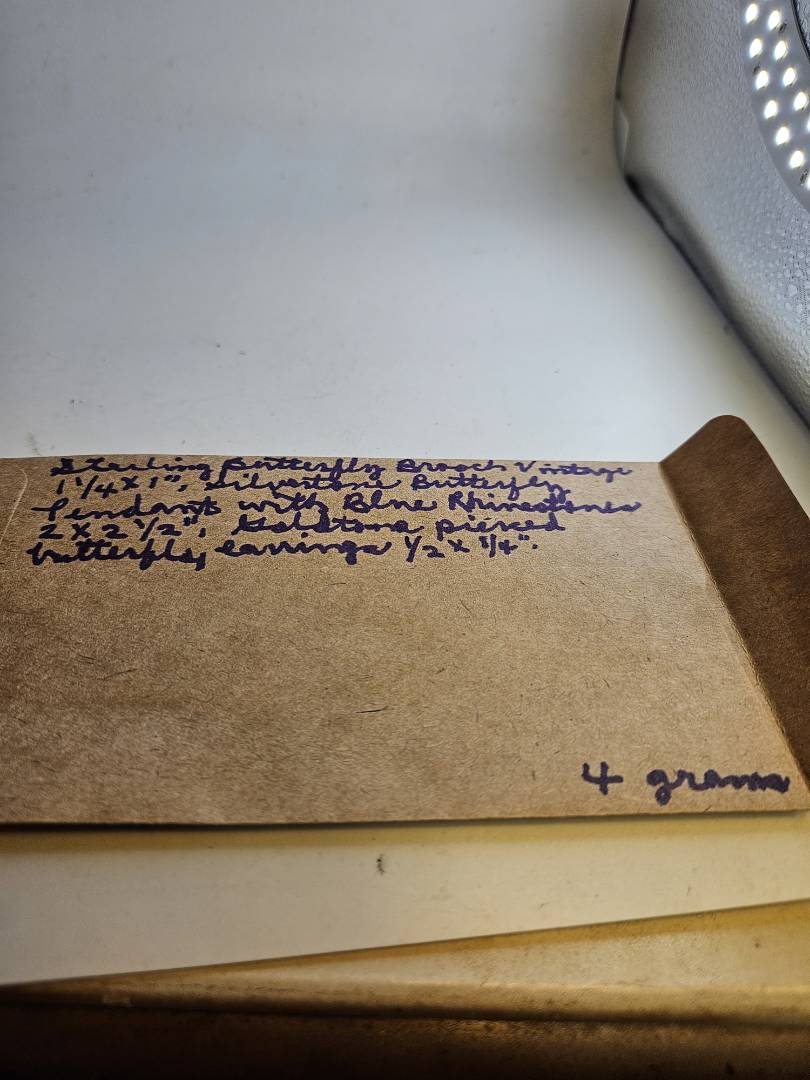 Sterling Butterfly Brooch Vintage
1 1/4 x 1", Silvertone Butterfly
Pendant with Blue Rhinestones
2 x 2 1/2", Goldtone pierced
butterfly earrings 1/2 x 1/4".
4 grams